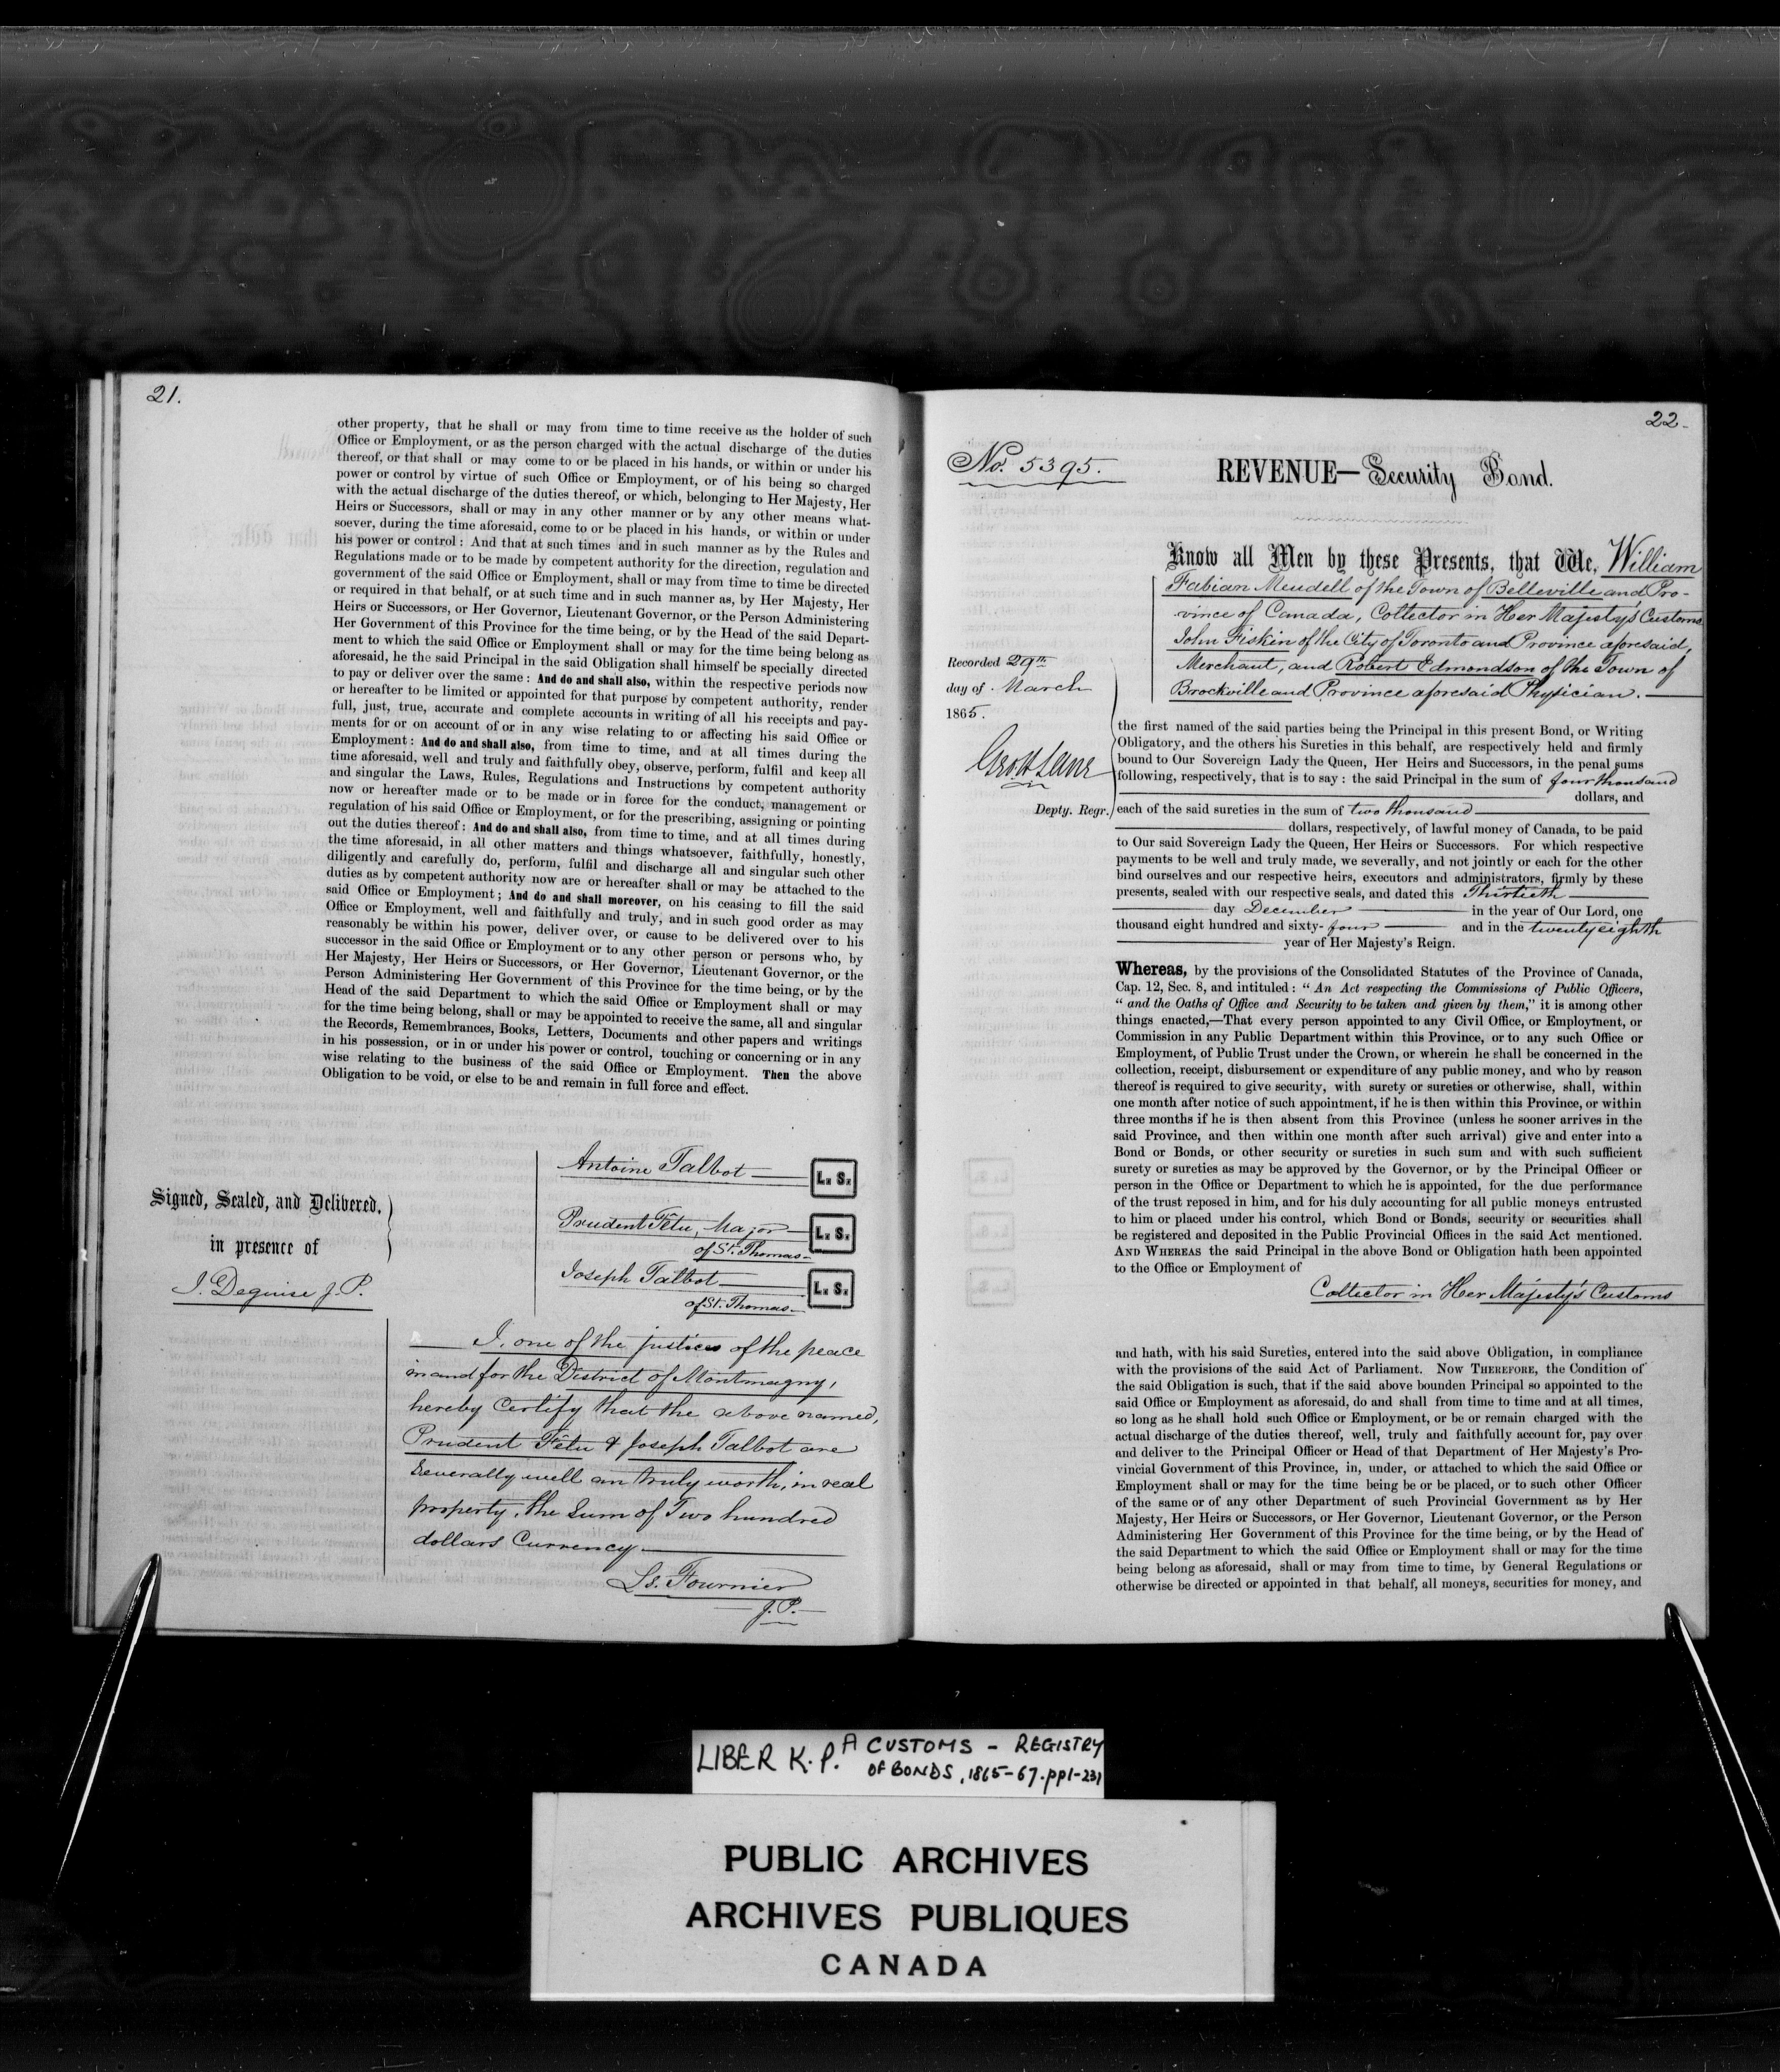 21.
other property, that he shall or may from time to time receive as the holder of such
Office or Employment, or as the person charged with the actual discharge of the duties
thereof, or that shall or may come to or be placed in his hands, or within or under his
power or control by virtue of such Office or Employment, or of his being so charged
with the actual discharge of the duties thereof, or which, belonging to Her Majesty, Her
Heirs or Successors, shall or may in any other manner or by any other means what-
soever, during the time aforesaid, come to or be placed in his hands, or within or under
his power or control : And that at such times and in such manner as by the Rules and
Regulations made or to be made by competent authority for the direction, regulation and
government of the said Office or Employment, shall or may from time to time be directed
or required in that behalf, or at such time and in such manner as, by Her Majesty, Her
Heirs or Successors, or Her Governor, Lieutenant Governor, or the Person Administering
Her Government of this Province for the time being, or by the Head of the said Depart-
ment to which the said Office or Employment shall or may for the time being belong as
aforesaid, he the said Principal in the said Obligation shall himself be specially directed
to pay or deliver over the same : And do and shall also, within the respective periods now
or hereafter to be limited or appointed for that purpose by competent authority, render
full, just, true, accurate and complete accounts in writing of all his receipts and pay-
ments for or on account of or in any wise relating to or affecting his said Office or
Employment : And do and shall also, from time to time, and at all times during the
time aforesaid, well and truly and faithfully obey, observe, perform, fulfil and keep all
and singular the Laws, Rules, Regulations and Instructions by competent authority
now or hereafter made or to be made or in force for the conduct, management or
regulation of his said Office or Employment, or for the prescribing, assigning or pointing
out the duties thereof : And do and shall also, from time to time, and at all times during
the time aforesaid, in all other matters and things whatsoever, faithfully, honestly,
diligently and carefully do, perform, fulfil and discharge all and singular such other
duties as by competent authority now are or hereafter shall or may be attached to the
said Office or Employment ; And do and shall moreover, on his ceasing to fill the said
Office or Employment, well and faithfully and truly, and in such good order as may
reasonably be within his power, deliver over, or cause to be delivered over to his
successor in the said Office or Employment or to any other person or persons who, by
Her Majesty, Her Heirs or Successors, or Her Governor, Lieutenant Governor, or the
Person Administering Her Government of this Province for the time being, or by the
Head of the said Department to which the said Office or Employment shall or may
for the time being belong, shall or may be appointed to receive the same, all and singular
the Records, Remembrances, Books, Letters, Documents and other papers and writings
in his possession, or in or under his power or control, touching or concerning or in any
wise relating to the business of the said Office or Employment. Then the above
Obligation to be void, or else to be and remain in full force and effect.
Antoine Talbot L. S.
Signed, Sealed, and Delivered,
in presence of
J. Deguise J. P.
Prudent Fêtu, Major L. S.
of St. Thomas
Joseph Talbot L. S.
of St. Thomas
I, one of the justices of the peace
in and for the District of Montmagny,
hereby Certify that the above named,
Prudent Fêtu & Joseph Talbot are
Severally well an truly worth, in real
property, the Sum of Two hundred
dollars Currency
Ls. Fournier
J. P.
22.
No. 5395.
REVENUE—Security Bond.
Know all Men by these Presents, that We, William
Fabian Meudell of the Town of Belleville and Pro-
vince of Canada, Collector in Her Majesty's Customs
John Fiskin of the City of Toronto and Province aforesaid,
Merchant, and Robert Edmondson of the Town of
Brockville and Province aforesaid Physician.
Recorded 29th
day of March
1865.
Geo. H. Lane
Depty. Regr.
the first named of the said parties being the Principal in this present Bond, or Writing
Obligatory, and the others his Sureties in this behalf, are respectively held and firmly
bound to Our Sovereign Lady the Queen, Her Heirs and Successors, in the penal sums
following, respectively, that is to say : the said Principal in the sum of four thousand
dollars, and
each of the said sureties in the sum of two thousand
dollars, respectively, of lawful money of Canada, to be paid
to Our said Sovereign Lady the Queen, Her Heirs or Successors. For which respective
payments to be well and truly made, we severally, and not jointly or each for the other
bind ourselves and our respective heirs, executors and administrators, firmly by these
presents, sealed with our respective seals, and dated this Thirtieth
day December in the year of Our Lord, one
thousand eight hundred and sixty-four and in the twenty eighth
year of Her Majesty's Reign.
Whereas, by the provisions of the Consolidated Statutes of the Province of Canada,
Cap. 12, Sec. 8, and intituled : “ An Act respecting the Commissions of Public Officers,
“ and the Oaths of Office and Security to be taken and given by them,” it is among other
things enacted,—That every person appointed to any Civil Office, or Employment, or
Commission in any Public Department within this Province, or to any such Office or
Employment, of Public Trust under the Crown, or wherein he shall be concerned in the
collection, receipt, disbursement or expenditure of any public money, and who by reason
thereof is required to give security, with surety or sureties or otherwise, shall, within
one month after notice of such appointment, if he is then within this Province, or within
three months if he is then absent from this Province (unless he sooner arrives in the
said Province, and then within one month after such arrival) give and enter into a
Bond or Bonds, or other security or sureties in such sum and with such sufficient
surety or sureties as may be approved by the Governor, or by the Principal Officer or
person in the Office or Department to which he is appointed, for the due performance
of the trust reposed in him, and for his duly accounting for all public moneys entrusted
to him or placed under his control, which Bond or Bonds, security or securities shall
be registered and deposited in the Public Provincial Offices in the said Act mentioned.
AND WHEREAS the said Principal in the above Bond or Obligation hath been appointed
to the Office or Employment of
Collector in Her Majesty's Customs
and hath, with his said Sureties, entered into the said above Obligation, in compliance
with the provisions of the said Act of Parliament. NOW THEREFORE, the Condition of
the said Obligation is such, that if the said above bounden Principal so appointed to the
said Office or Employment as aforesaid, do and shall from time to time and at all times,
so long as he shall hold such Office or Employment, or be or remain charged with the
actual discharge of the duties thereof, well, truly and faithfully account for, pay over
and deliver to the Principal Officer or Head of that Department of Her Majesty's Pro-
vincial Government of this Province, in, under, or attached to which the said Office or
Employment shall or may for the time being be or be placed, or to such other Officer
of the same or of any other Department of such Provincial Government as by Her
Majesty, Her Heirs or Successors, or Her Governor, Lieutenant Governor, or the Person
Administering Her Government of this Province for the time being, or by the Head of
the said Department to which the said Office or Employment shall or may for the time
being belong as aforesaid, shall or may from time to time, by General Regulations or
otherwise be directed or appointed in that behalf, all moneys, securities for money, and
LIBER K.P. A CUSTOMS - REGISTRY
OF BONDS, 1865-67. pp1-231
PUBLIC ARCHIVES
ARCHIVES PUBLIQUES
CANADA